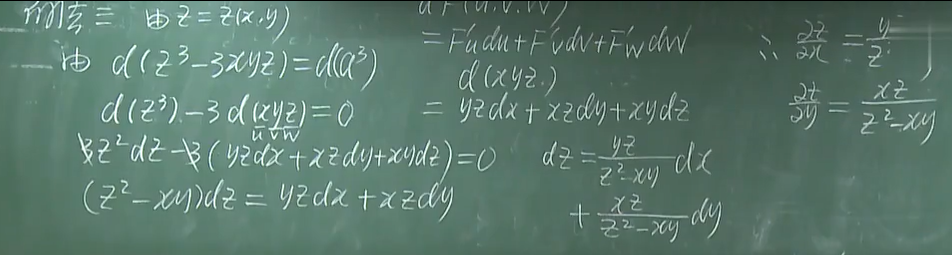 解法三 由z=z(x,y)
由 d(z³-3xyz)=d(a³)
d(z³)-3d(xyz)=0
u v w
3z²dz-3(yzdx+xzdy+xydz)=0
(z²-xy)dz=yzdx+xzdy
dF(u.v.w)
=F'u du+F'v dv+F'w dw
d(xyz)
=yzdx+xzdy+xydz
dz=yz/(z²-xy) dx
+xz/(z²-xy) dy
∴ ∂z/∂x=y/z
∂z/∂y=xz/(z²-xy)